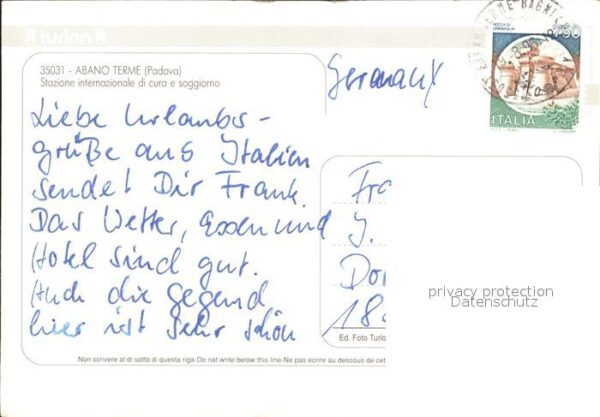 turlon
35031 - ABANO TERME (Padova)
Stazione internazionale di cura e soggiorno
Germany
Liebe Urlaubs-
grüße aus Italien
sendet Dir Frank.
Das Wetter, Essen und
Hotel sind gut.
Auch die Gegend
hier ist sehr schön
ROCCA DI
URBISAGLIA
750
ITALIA
Fra
J.
Do
18
privacy protection
Datenschutz
Ed. Foto Turlo
Non scrivere al di sotto di questa riga-Do not write below this line-Ne pas écrire au dessous de cet